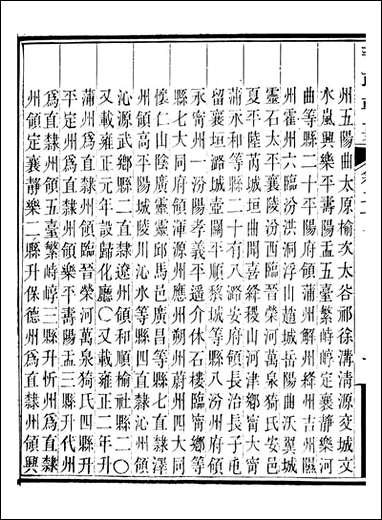 州五陽曲太原榆次太谷祁徐溝清源交城文
水嵐興樂平壽陽盂五臺繁峙崞定襄靜樂河
曲等縣二十平陽府領蒲州解州絳州吉州隰
州霍州六臨汾洪洞浮山趙城岳陽曲沃翼城
靈石太平襄陵汾西臨晉榮河萬泉猗氏安邑
夏平陸芮城垣曲聞喜絳稷山河津鄉寧大寧
蒲永和等縣二十有八潞安府領長治長子屯
留襄垣潞城壺關平順黎城等縣八汾州府領
永寧州一汾陽孝義平遥介休石樓臨寧鄉等
縣七大同府領渾源州應州朔州蔚州四大同
懷仁山陰廣靈靈邱馬邑廣昌等縣七直隸澤
州領高平陽城陵川沁水等縣四直隸沁州領
沁源武鄉縣二直隸遼州領和順榆社縣二〇
又載雍正元年設歸化廳〇又載雍正二年升
蒲州爲直隸州領臨晉榮河萬泉猗氏四縣升
平定州爲直隸州領樂平壽陽盂三縣升代州
爲直隸州領五臺繁峙崞三縣升忻州爲直隸
州領定襄靜樂二縣升保德州爲直隸州領興